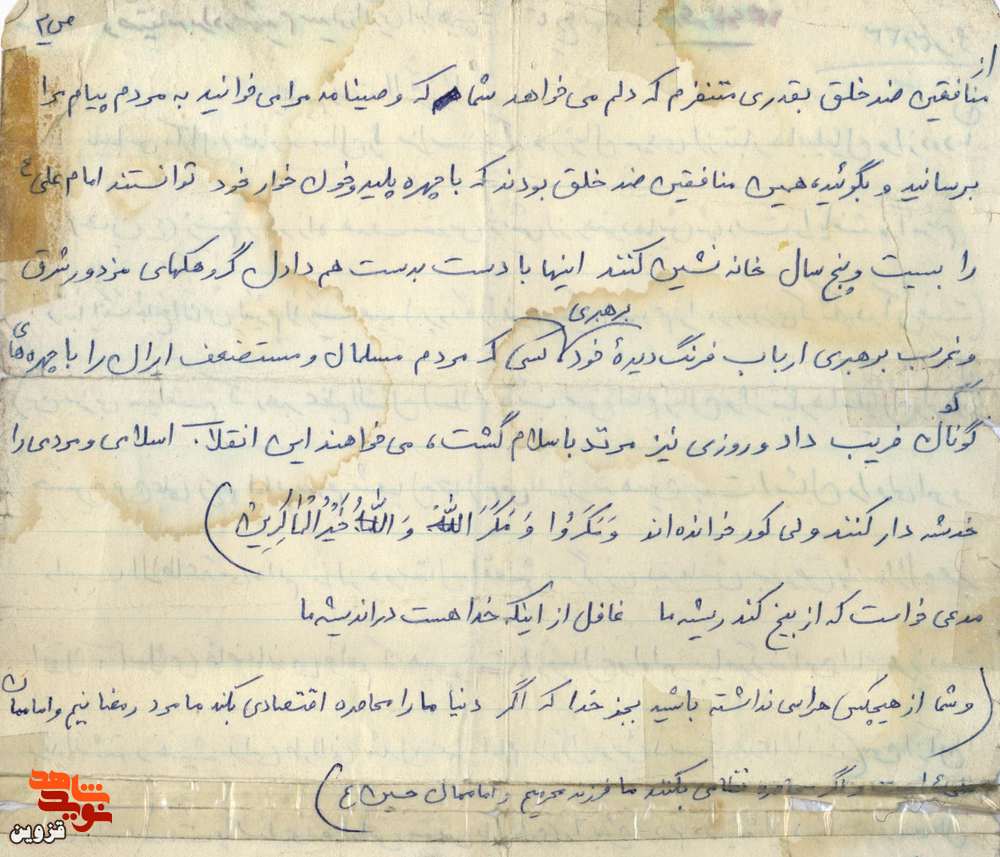 ص ۲
از
منافقین ضد خلق بقدری متنفرم که دلم می‌خواهد شما که وصیتنامه مرا می‌خوانید به مردم پیام مرا
برسانید و بگوئید، همین منافقین ضد خلق بودند که با چهره پلید و خون خوار خود توانستند امام علی ع
را بیست و پنج سال خانه نشین کنند اینها با دست بدست هم دادن گروهکهای مزدور شرق
برهبری
و غرب برهبری ارباب فرنگ دیدهٔ خود کسی که مردم مسلمان و مستضعف ایران را با چهره‌های
گو
گوناگ فریب داد و روزی نیز مرتد باسلام گشت، می‌خواهند این انقلاب اسلامی و مردمی را
خدشه دار کنند ولی کور خوانده‌اند وَ مَکَرُوا وَ مَکَرَ اللهُ وَ اللهُ خَیْرُ الْمَاکِرِینَ )
مدعی خواست که از بیخ کند ریشه ما غافل از اینکه خدا هست در اندیشه ما
( و شما از هیچکس هراسی نداشته باشید بجز خدا که اگر دنیا ما را محاصره اقتصادی بکند ما مرد رمضانیم و اماممان
علی ع و اگر محاصره نظامی بکنند ما فرزند محرمیم و اماممان حسین ع )
شاهد
نوید
قزوین